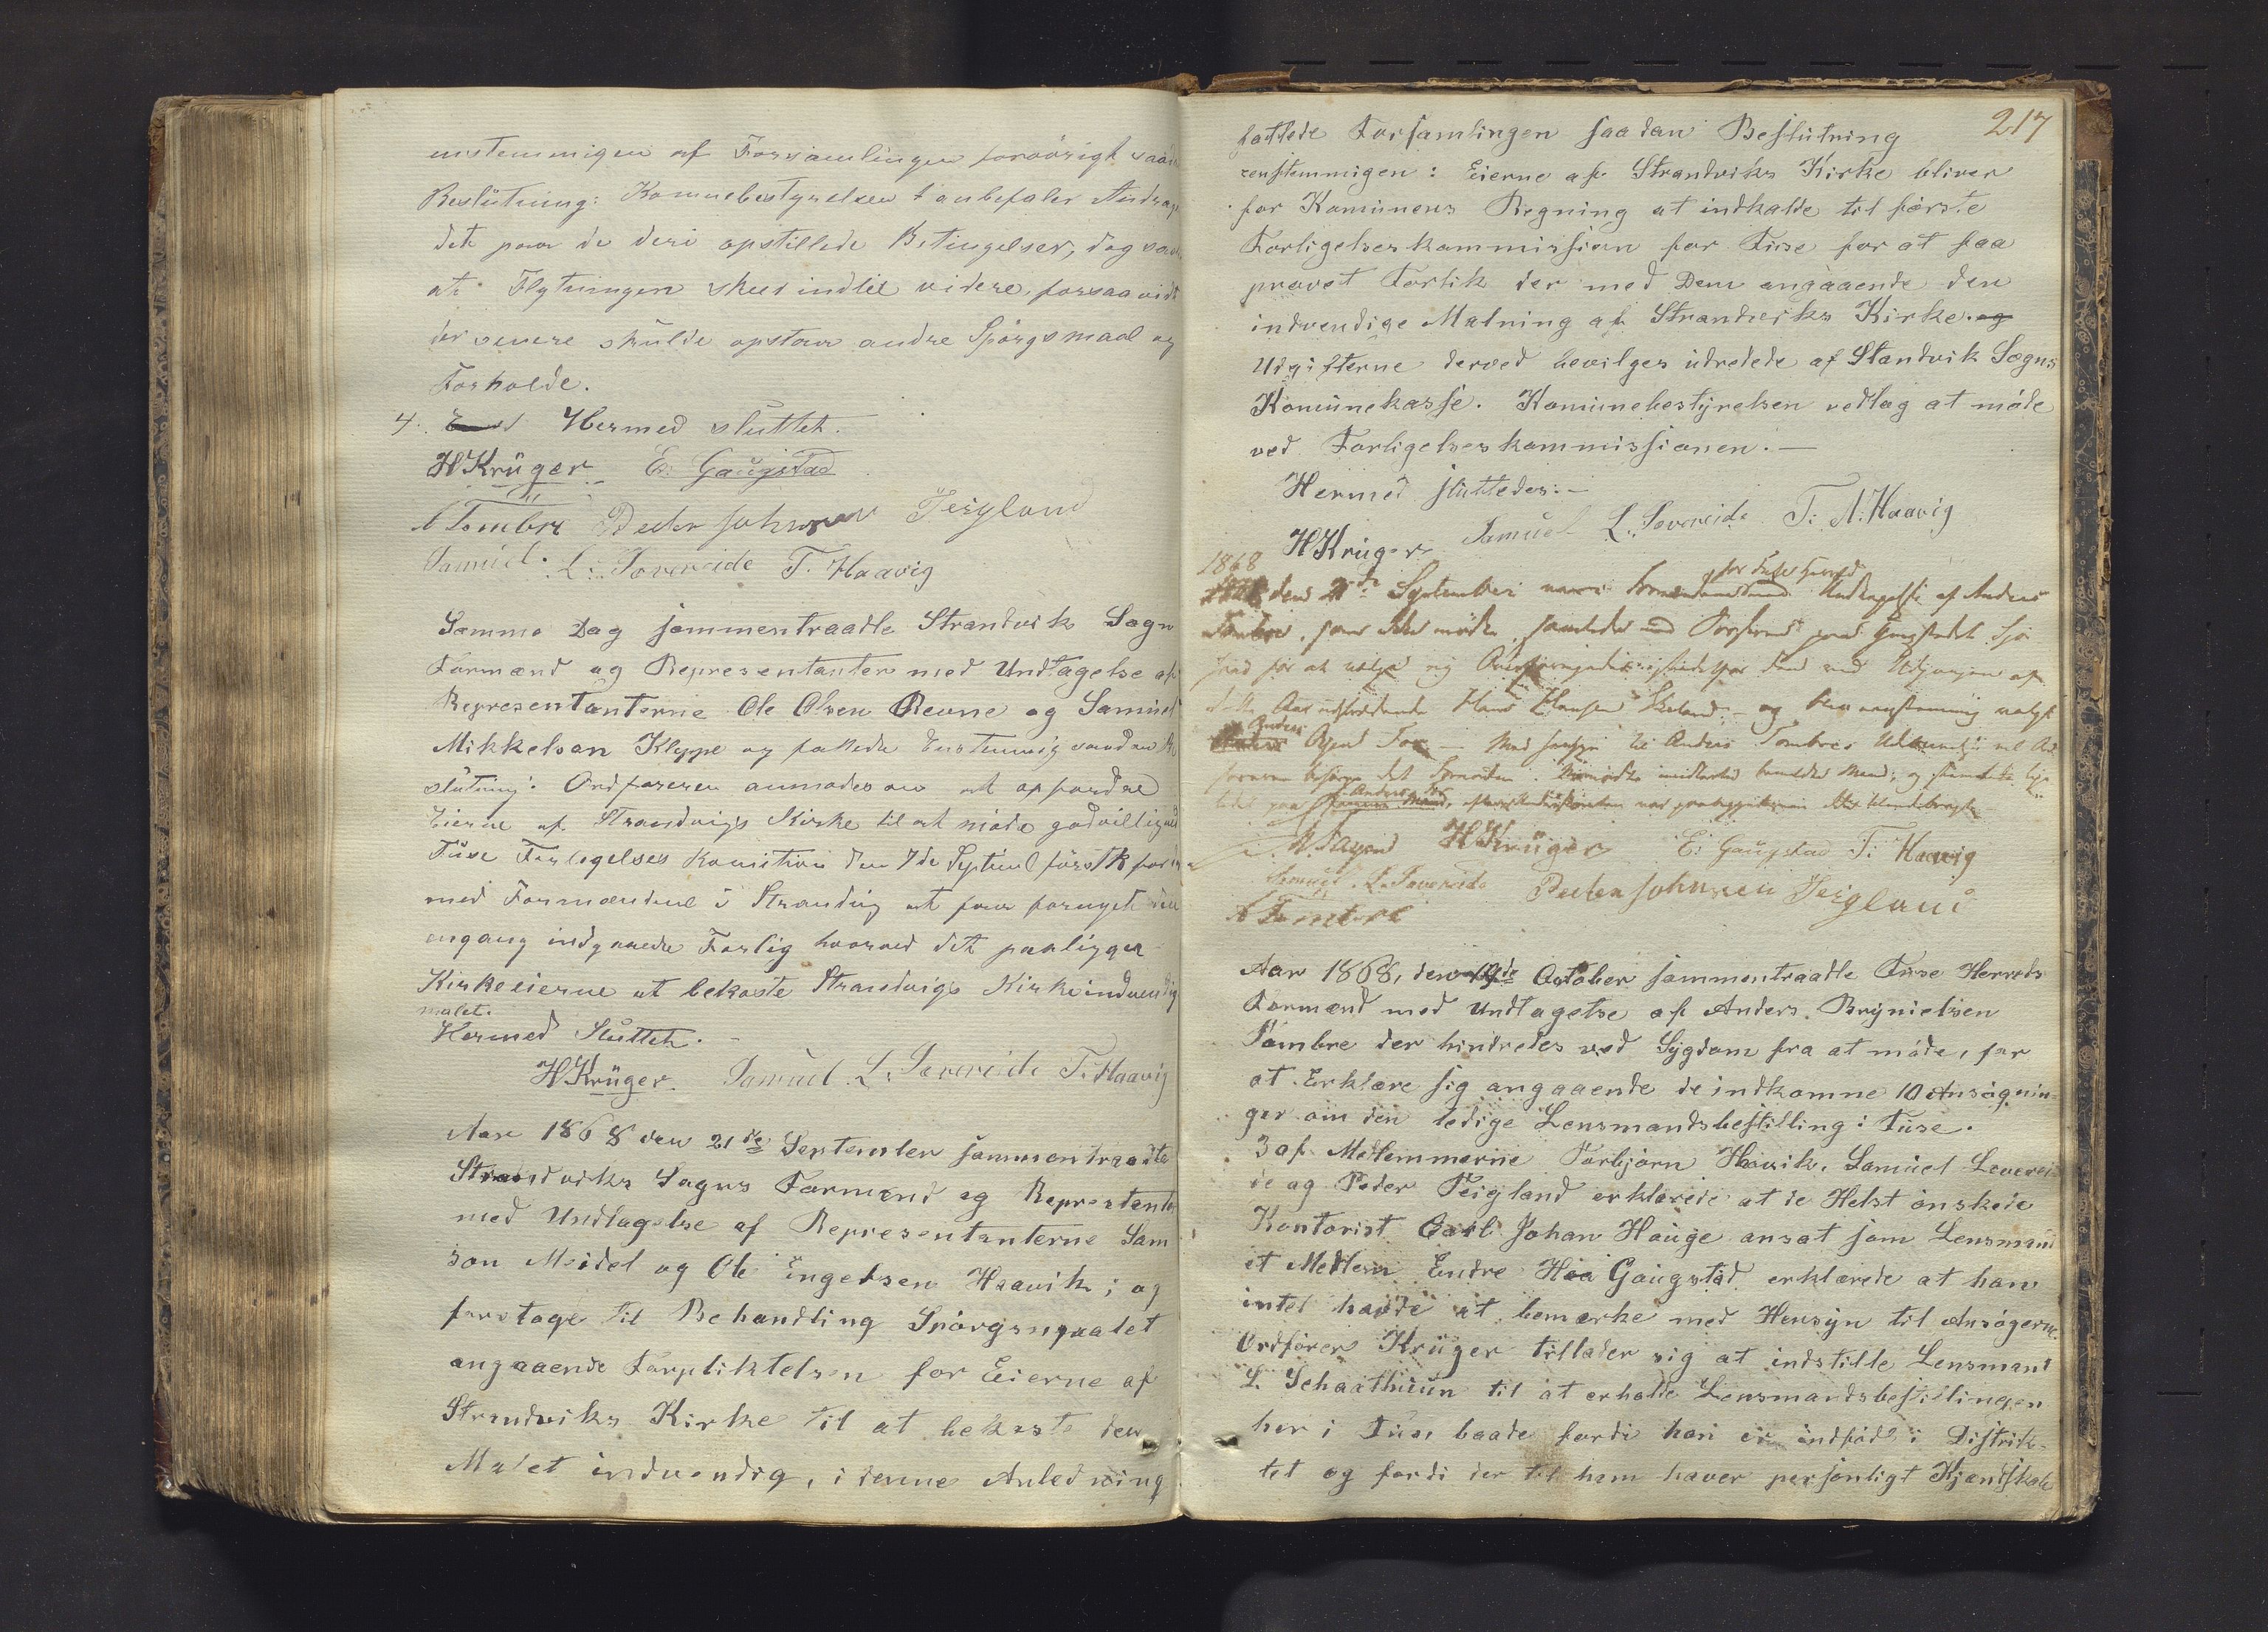 enstemmigen af Forsamlingen forøvrigt saadan
Beslutning: Komunebestyrelsen anbefaler Andrage
det paa de deri opstillede Betingelser, dog saaledes
at Flytningen skeer indtil videre, forsaavidt
der senere skulde opstaa andre Spörgsmaal og
Forholde.
4. Hermed sluttet.
HKrüger E: Gaugstad
A Tombre Peder Johnsen Teigland
Samuel L: Sævereide T. Haavig
Samme Dag sammentraadte Strandvik Sogns
Formænd og Representanter med Undtagelse af
Representanterne Ole Olsen Revne og Samuel
Mikkelsen Kleppe og fattede Enstemmig saadan Be
slutning: Ordføreren anmodes om at opfordre
Eierne af Strandvigs Kirke til at møde godvillig ved
Fuse Forligelses Komission den 7de Septembr förstk for
med Formændene i Strandvig at faa fornyet den
engang indgaaede Forlig hvorved det paaligger
Kirkeeierne at bekoste Strandvigs Kirke indvendig
malet.
Hermed Sluttet.
HKrüger. Samuel L: Sævereide T. Haavig
Aar 1868 den 21de September sammentraadte
Strandviks Sogns Formænd og Representanter
med Undtagelse af Representanterne Sam
son Meidel og Ole Engelsen Haavik; og
foretoges til Behandling Spörgsmaalet
angaaende Forpliktelsen for Eierne af
Strandviks Kirke til at bekoste den
Malet indvendig, i denne Anledning
217
fattede Forsamlingen saadan Beslutning
eenstemmigen: Eierne af Strandviks Kirke bliver
for Komunens Regning at indkalde til første
Forligelseskommission for Fuse for at faa
prøvet Forlik der med Dem angaaende den
indvendige Malning af Strandviks Kirke. og
Udgifterne derved bevilges udredede af Standvik Sogns
Komunekasse. Komunebestyrelsen vedtag at møde
ved Forligelseskommissionen.—
Hermed sluttedes:—
HKrüger Samuel L: Sævereide T: A: Haavig
for Fuse Herred
1868 den 21de September vare Formændene Undtagelse af Anders
Tombre, som ikke mødte, samlede
for at vælge ny ved Udgangen af
dette Aar udtrædende Hans Hansen og blev eenstemmig valgt
Anders
Med Hensyn til Anders Tombres vil Ord
føreren besørge det
HKrüger E: Gaugstad T: Haavig
Samuel L. Sævereide Peder Johnsen Teigland
A Tombre
Aar 1868, den October sammentraadte Fuse Herreds
Formænd med Undtagelse af Anders Brynielsen
Tombre der hindredes ved Sygdom fra at møde, for
at Erklære sig angaaende de indkomne 10 Ansøgnin
ger om den ledige Lensmandsbestilling i Fuse.
3 af Medlemmerne Torbjörn Haavik, Samuel Sæverei
de og Peder Teigland erklærede at de Helst ønskede
Kontorist Carl Johan Hauge ansat som Lensmand
et Medlem Endre H Gaugstad erklærede at han
intet havde at bemærke med Hensyn til Ansøgerne.
Ordfører Krüger tillader sig at indstille Lensmand
L. Schaathuun til at erholde Lensmandsbestillingen
her i Fuse baade fordi han er indfød i Distrik-
tet og fordi der til ham haver personligt Kjændskab